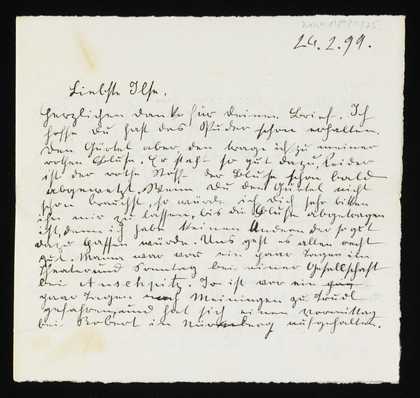 24.2.99.
Liebste Ilse.
Herzlichen Dank für deinen Brief. Ich
hoffe Du hast das Puder schon erhalten.
Den Gürtel aber, den trage ich zu meiner
rothen Bluse. Er steht so gut dazu, Leider
ist der rothe Stoff der Bluse schon bald
abgewetzt. Wenn Du den Gürtel nicht
schon brauchst, so würde ich Dich sehr bitten
ihn mir zu lassen, bis die Bluse abgetragen
ist, denn ich habe keinen Andern der so gut
dazu passen würde. Uns geht es allen recht
gut. Mama war vor ein paar Tagen im
Theater und Sonntag bei einer Gesellschaft
bei Anschütz. Sie ist vor ein
paar Tagen nach Meiningen zu Trudl
gefahren und hat sich einen Vormittag
bei Robert in Nürnberg aufgehalten.